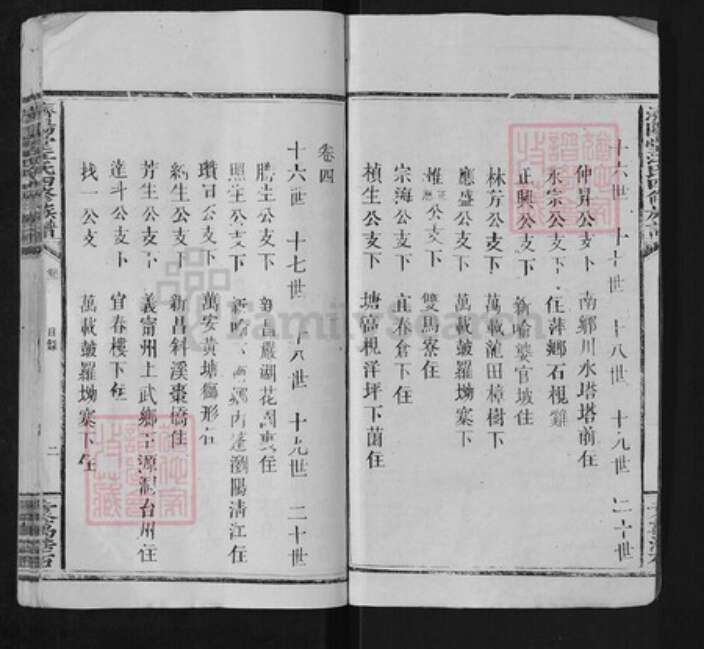 十六世 十七世 十八世 十九世 二十世
仲昇公支下 南鄉川水塔塔前住
永宗公支下 住萍鄉石枧雞
正興公支下 新喻婆官坡住
林芳公支下 萬載龍田樟樹下
應盛公支下 萬載皷羅坳寨下
公支下 雙馬寮住
宗海公支下 宜春倉下住
楨生公支下 塘高枧洋坪下菌住
卷四
十六世 十七世 十八世 十九世 二十世
騰生公支下 新昌嚴湖花園裏住
照生公支下 瀏陽清江住
公支下 萬安黃塘獅形
生公支下 新昌斜溪棗橋住
芳生公支下 義甯州上武鄉 源洞台州住
達斗公支下 宜春樓下住
找一公支 萬載皷羅坳寨下住
濟陽堂江氏四修族譜
卷
目錄
二
FamilySearch